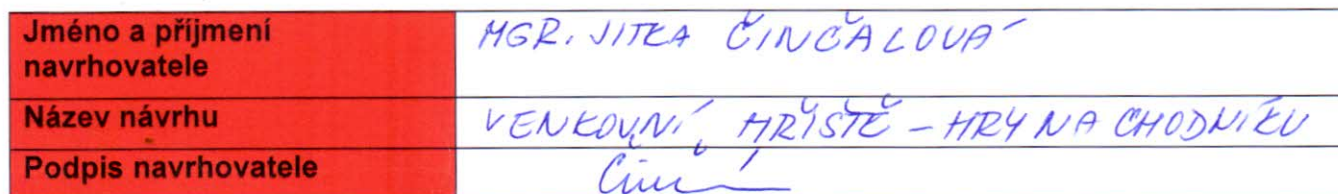 Jméno a příjmení
navrhovatele
MGR. JITKA ČINČALOVÁ
Název návrhu
VENKOVNÍ HŘIŠTĚ - HRY NA CHODNÍKU
Podpis navrhovatele